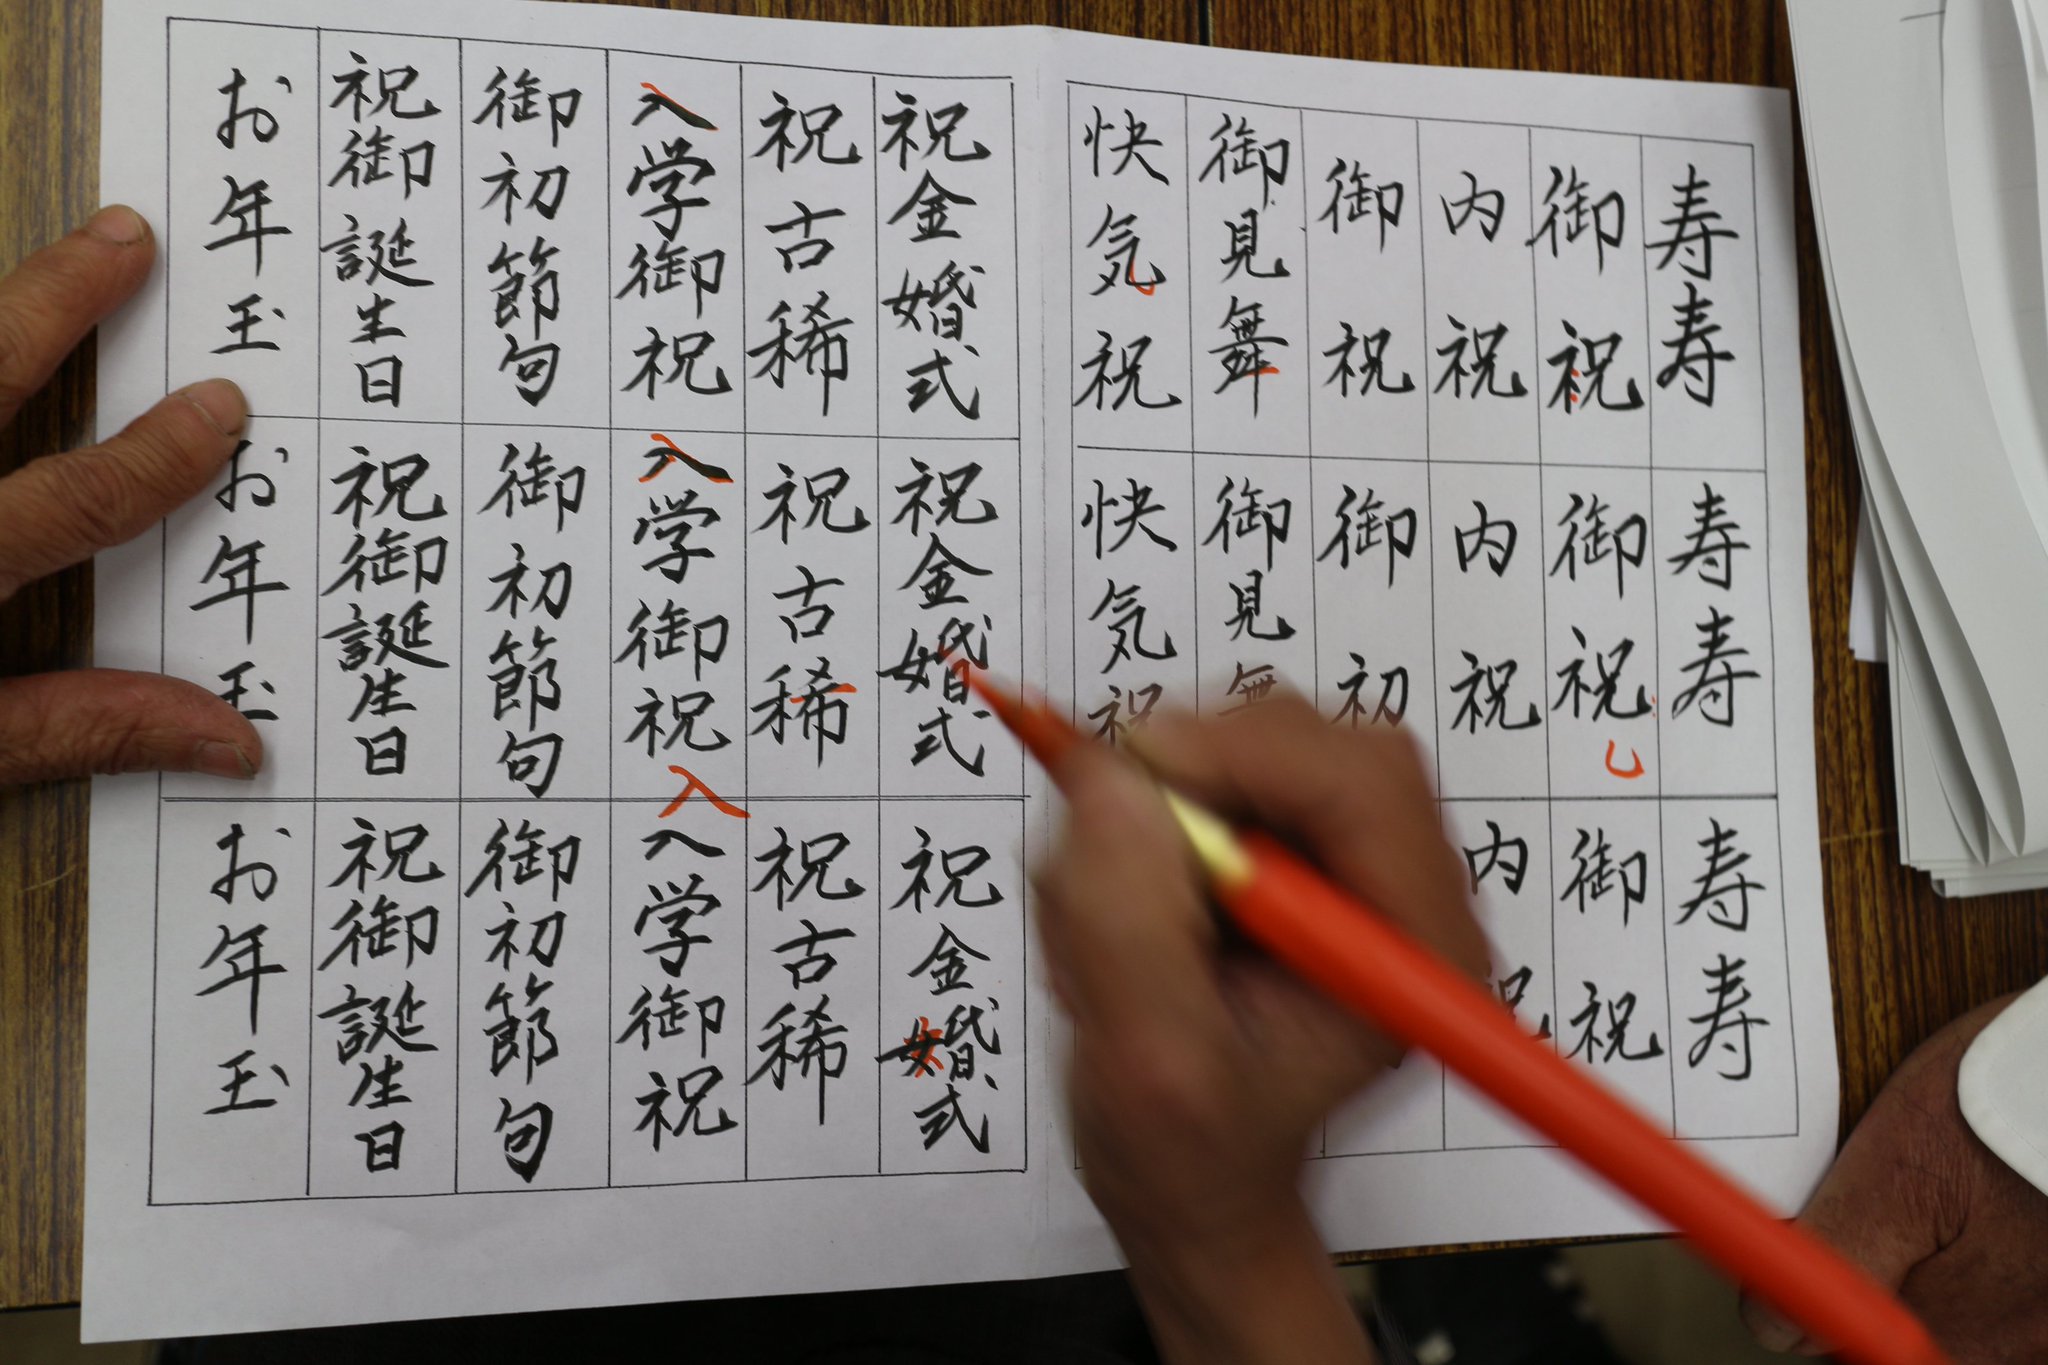 寿寿
御祝
内祝
御祝
御見舞
快気祝
寿寿
御祝
内祝
御初
御見
快気祝
寿寿
御祝
内祝
祝金婚式
祝古稀
入学御祝
御初節句
祝御誕生日
お年玉
祝金婚式
祝古稀
入学御祝
入
御初節句
祝御誕生日
お年玉
祝金婚式
祝古稀
入学御祝
御初節句
祝御誕生日
お年玉